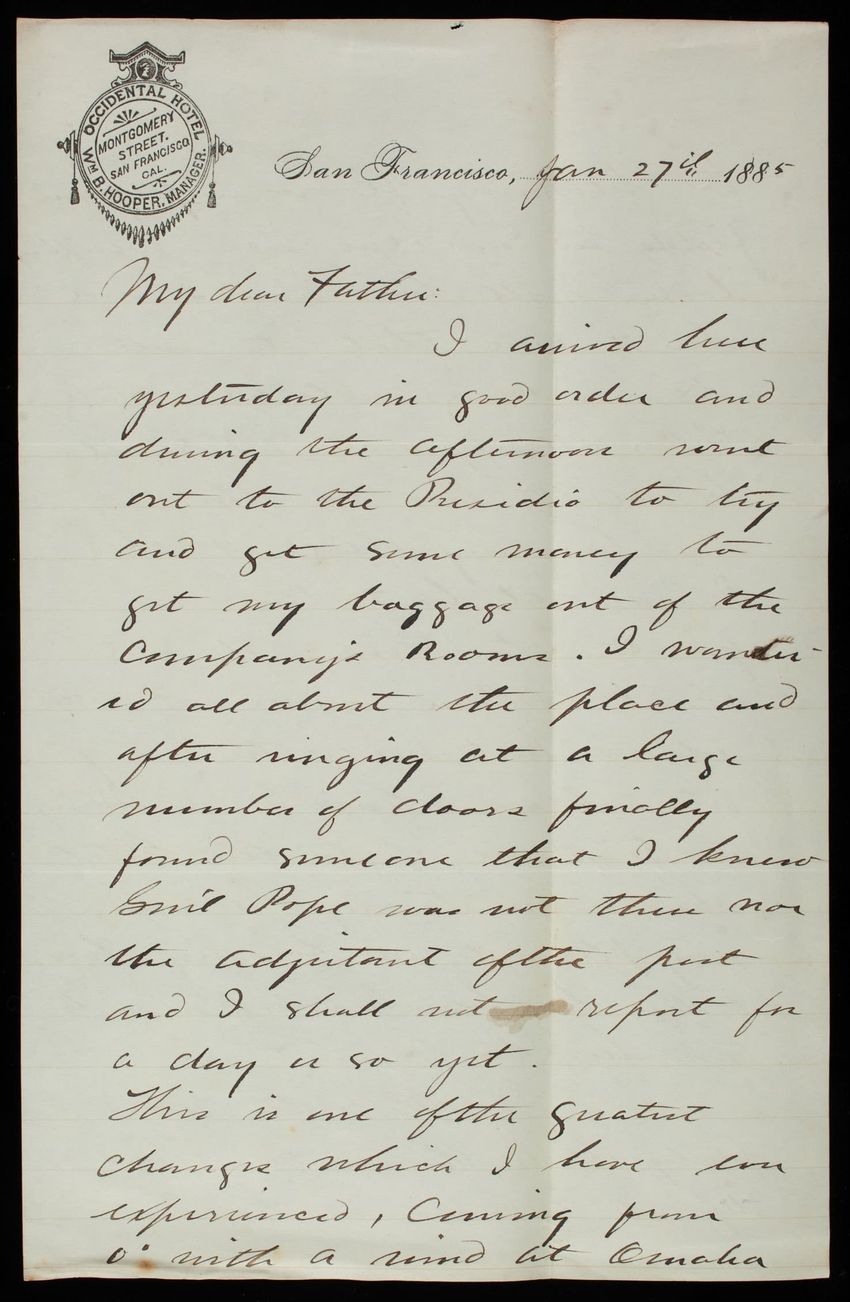 OCCIDENTAL HOTEL
MONTGOMERY
STREET.
SAN FRANCISCO
CAL.
WM B. HOOPER, MANAGER.
San Francisco, Jan 27th 1885
My dear Father:
I arrived here
yesterday in good order and
during the afternoon went
out to the Presidio to try
and get some money to
get my baggage out of the
Company's Rooms. I wander-
ed all about the place and
after ringing at a large
number of doors finally
found someone that I knew
Genl Pope was not there nor
the adjutant of the post
and I shall not report for
a day or so yet.
This is one of the greatest
changes which I have ever
experienced, Coming from
0° with a wind at Omaha